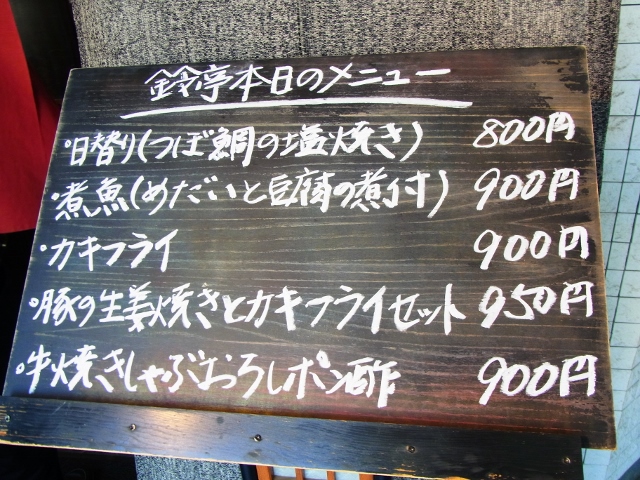 鈴亭本日のメニュー
・日替り(つぼ鯛の塩焼き) 800円
・煮魚(めだいと豆腐の煮付) 900円
・カキフライ 900円
・豚の生姜焼きとカキフライセット 950円
・牛焼きしゃぶおろしポン酢 900円